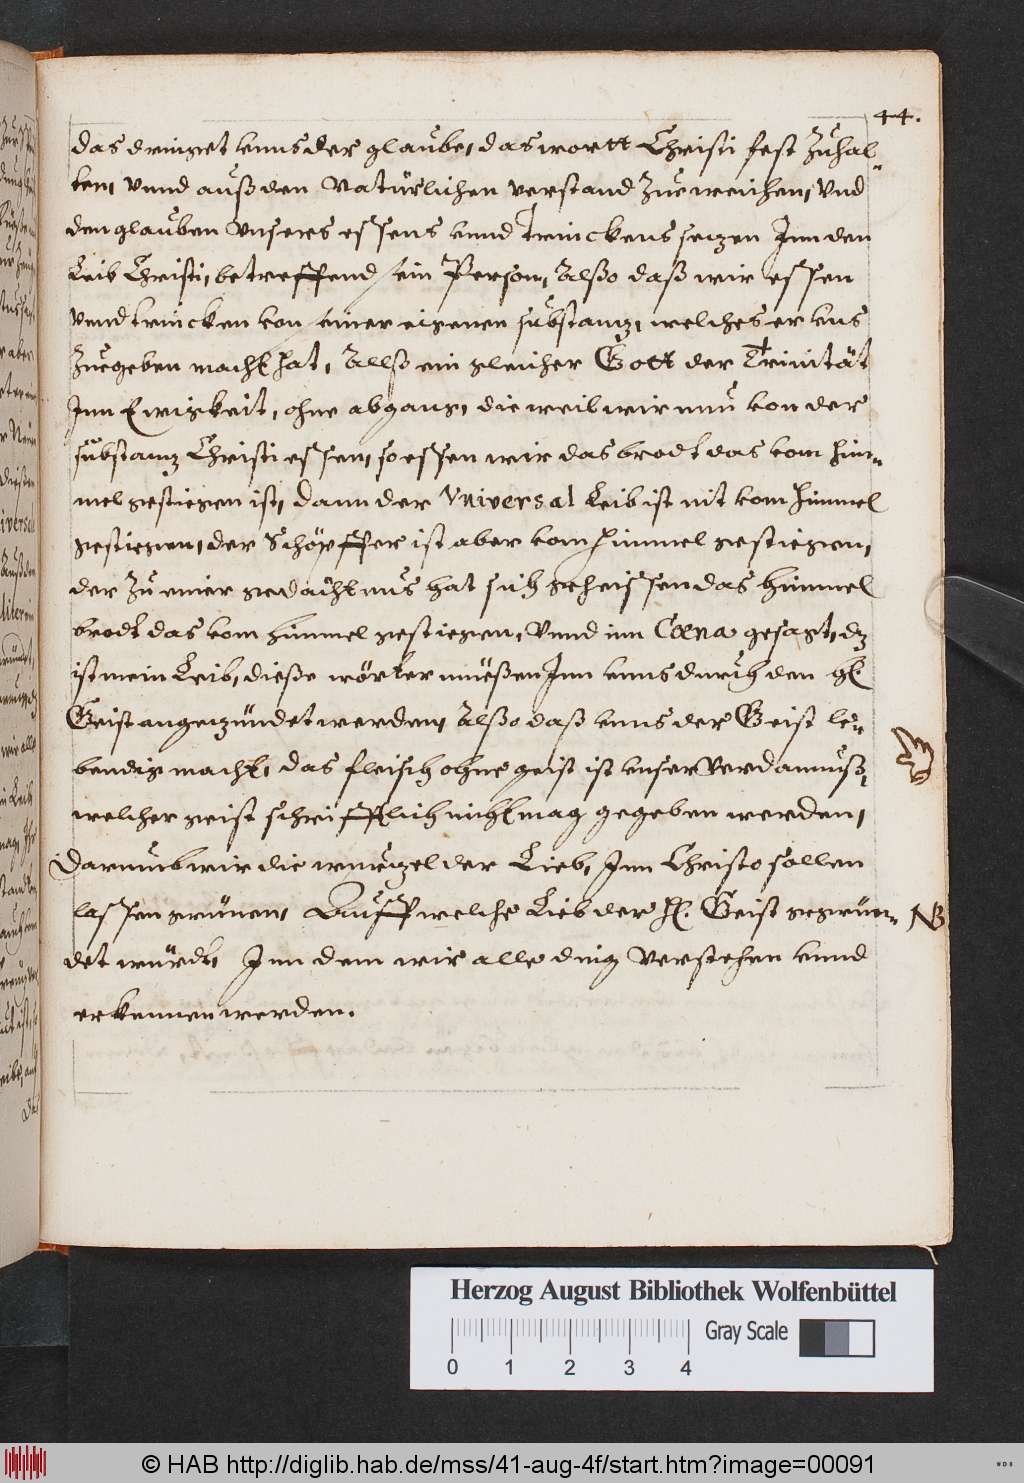 44.
das dringet unns der glaube, das wortt Christi fest zuhal-
ten, vnnd auß den Natürlichen verstand zue weichen, vnd
den glauben vnsers essens vnnd Trinckens sezen Inn den
Leib Christi, betreffend sein Person, Alßo daß wir essen
vnnd trincken von einer eigenen substanz, welches er vns
zuegeben macht hat, Allß ein gleicher Gott der Trinität
Inn Ewigkeit, ohne abgang, die weil wir nuu von der
substanz Christi essen, so essen wir das brodt das vom him-
mel gestiegen ist, dann der Vniversal Leib ist nit vom himmel
gestiegen, der Schöpffer ist aber vom himmel gestiegen,
der zu einer gedächtnus hat sich geheissen das himmel
brodt das vom himmel gestiegen, vnnd inn Cœna gesagt, dz
ist mein Leib, dieße wörter müeßen Inn vnns durch den hl
Geist angezündet werden, Alßo daß vnns der Geist le-
bendig macht, das fleisch ohne geist ist vnser verdamnuß,
welcher geist schrifftlich nicht mag gegeben werden,
Darumb wir die wurzel der Lieb, Inn Christo sollen
lassen grünen, Auff welche Lieb der H. Geist gegrün-
NB
det würdt, Inn dem wir alle ding verstehen vnnd
erkennen werden.
Herzog August Bibliothek Wolfenbüttel
Gray Scale
0 1 2 3 4
© HAB http://diglib.hab.de/mss/41-aug-4f/start.htm?image=00091